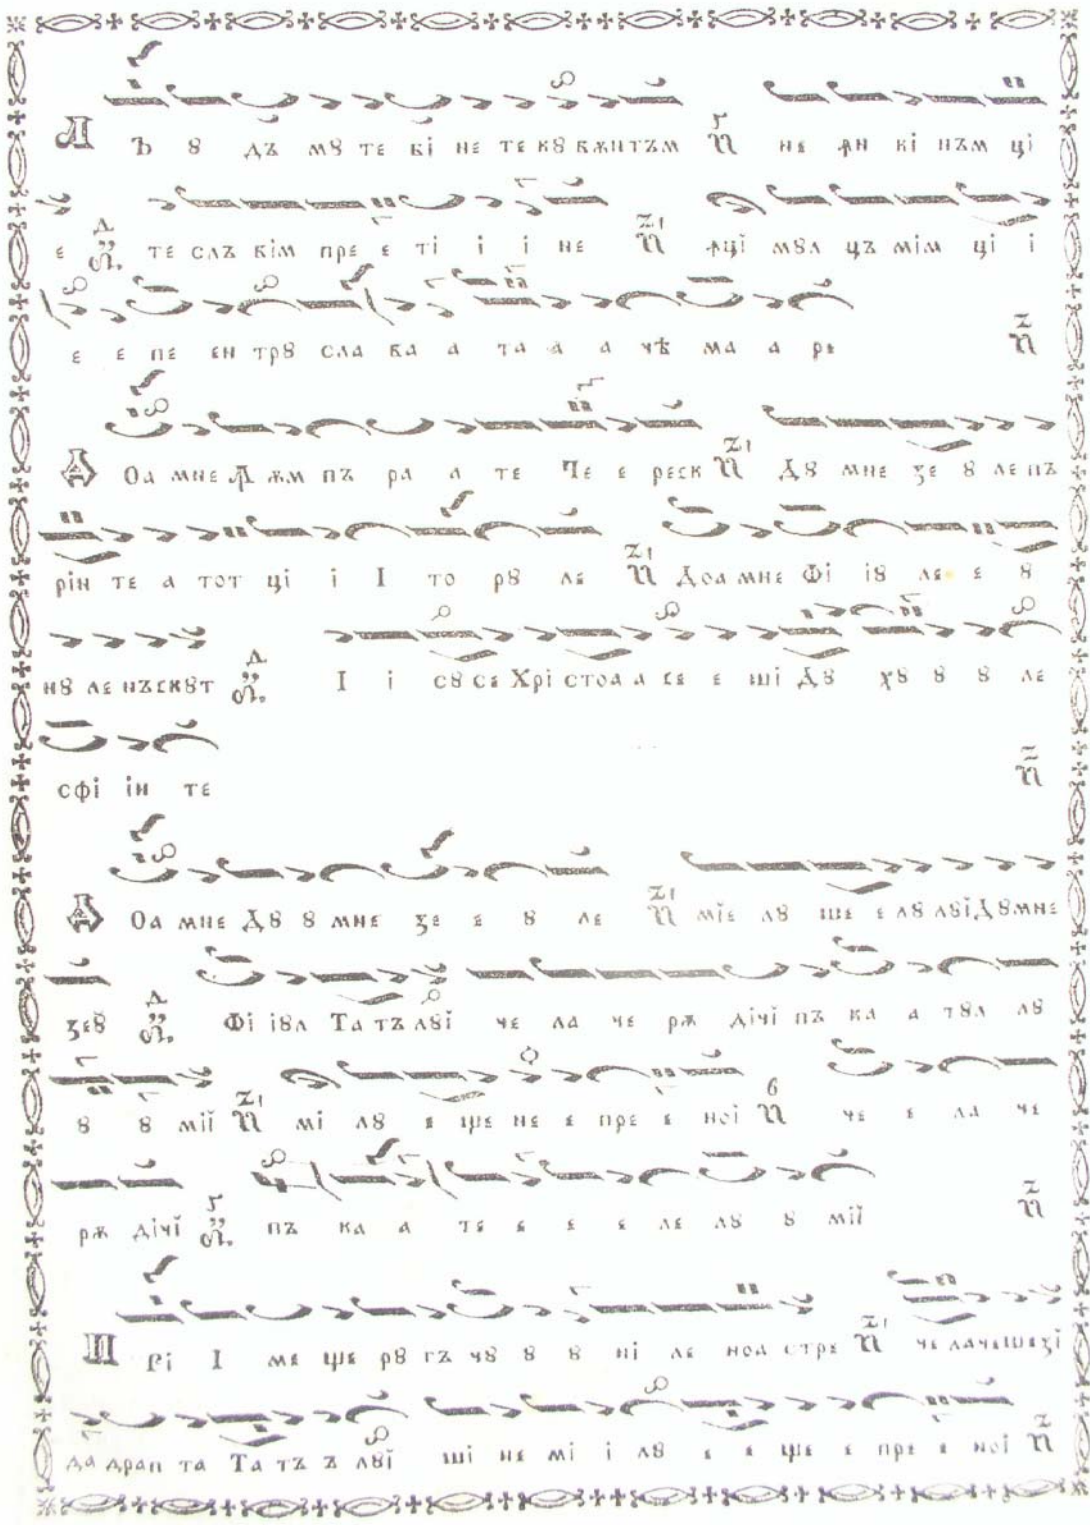 Лъ ꙋ дъ мꙋ те ві не те кꙋ вѫнтъм не ꙟн кі нъм ці
е те слъ вім пре е ті і і не ꙟці мꙋл цъ мім ці і
е е пе ен трꙋ сла ва а та а а чѣ ма а ре
Доа мне Ꙟм пъ ра а те Че е реск Дꙋ мне зе ꙋ ле пъ
рін те а тот ці і І то рꙋ ле Доа мне Фі іꙋ ле е ꙋ
нꙋ ле нъскꙋт І і сꙋ се Хрі стоа а се е ші Дꙋ хꙋ ꙋ ꙋ ле
сфі ін те
Доа мне Дꙋ ꙋ мне зе е ꙋ ле міе лꙋ ше е лꙋ лꙋї Дꙋмне
зеꙋ Фі іꙋл Та тъ лꙋї че ла че рѫ дічї пъ ка а тꙋл лꙋ
ꙋ ꙋ мії мі лꙋ е ще не е пре е ної че е ла че
рѫ дічї пъ ка а те е е е е ле лꙋ ꙋ мії
При І ме ще рꙋ гъ чꙋ ꙋ ꙋ ні ле ноа стре че ла че шезї
да драп та Та тъ ъ лꙋї ші не мі і лꙋ е е ще е пре е ної